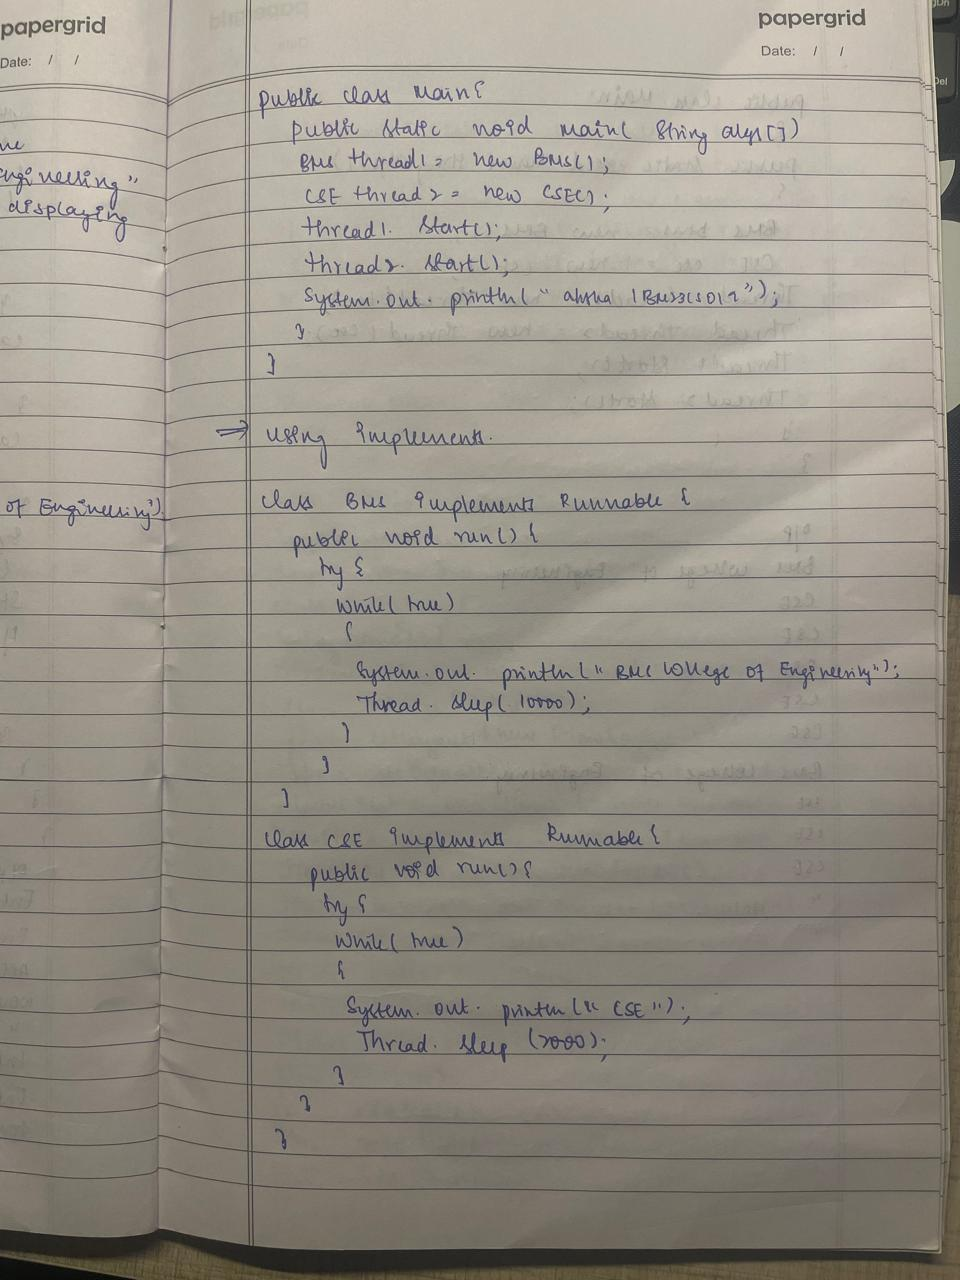 papergrid
Date: / /
ne
Engineering"
displaying
of Engineering")
papergrid
Date: / /
public class Main{
public static void main( String args[])
BMS thread1 = new BMS();
CSE thread2 = new CSE();
thread1. Start();
thread2. Start();
System.out. println("
");
}
}
⇒ using implements.
class BMS implements Runnable {
public void run() {
try {
while( true)
{
System.out. println(" BMS College of Engineering");
Thread. sleep( 10000);
}
}
}
class CSE implements Runnable {
public void run() {
try {
while( true)
{
System. out. println(" CSE ");
Thread. sleep (2000);
}
}
}